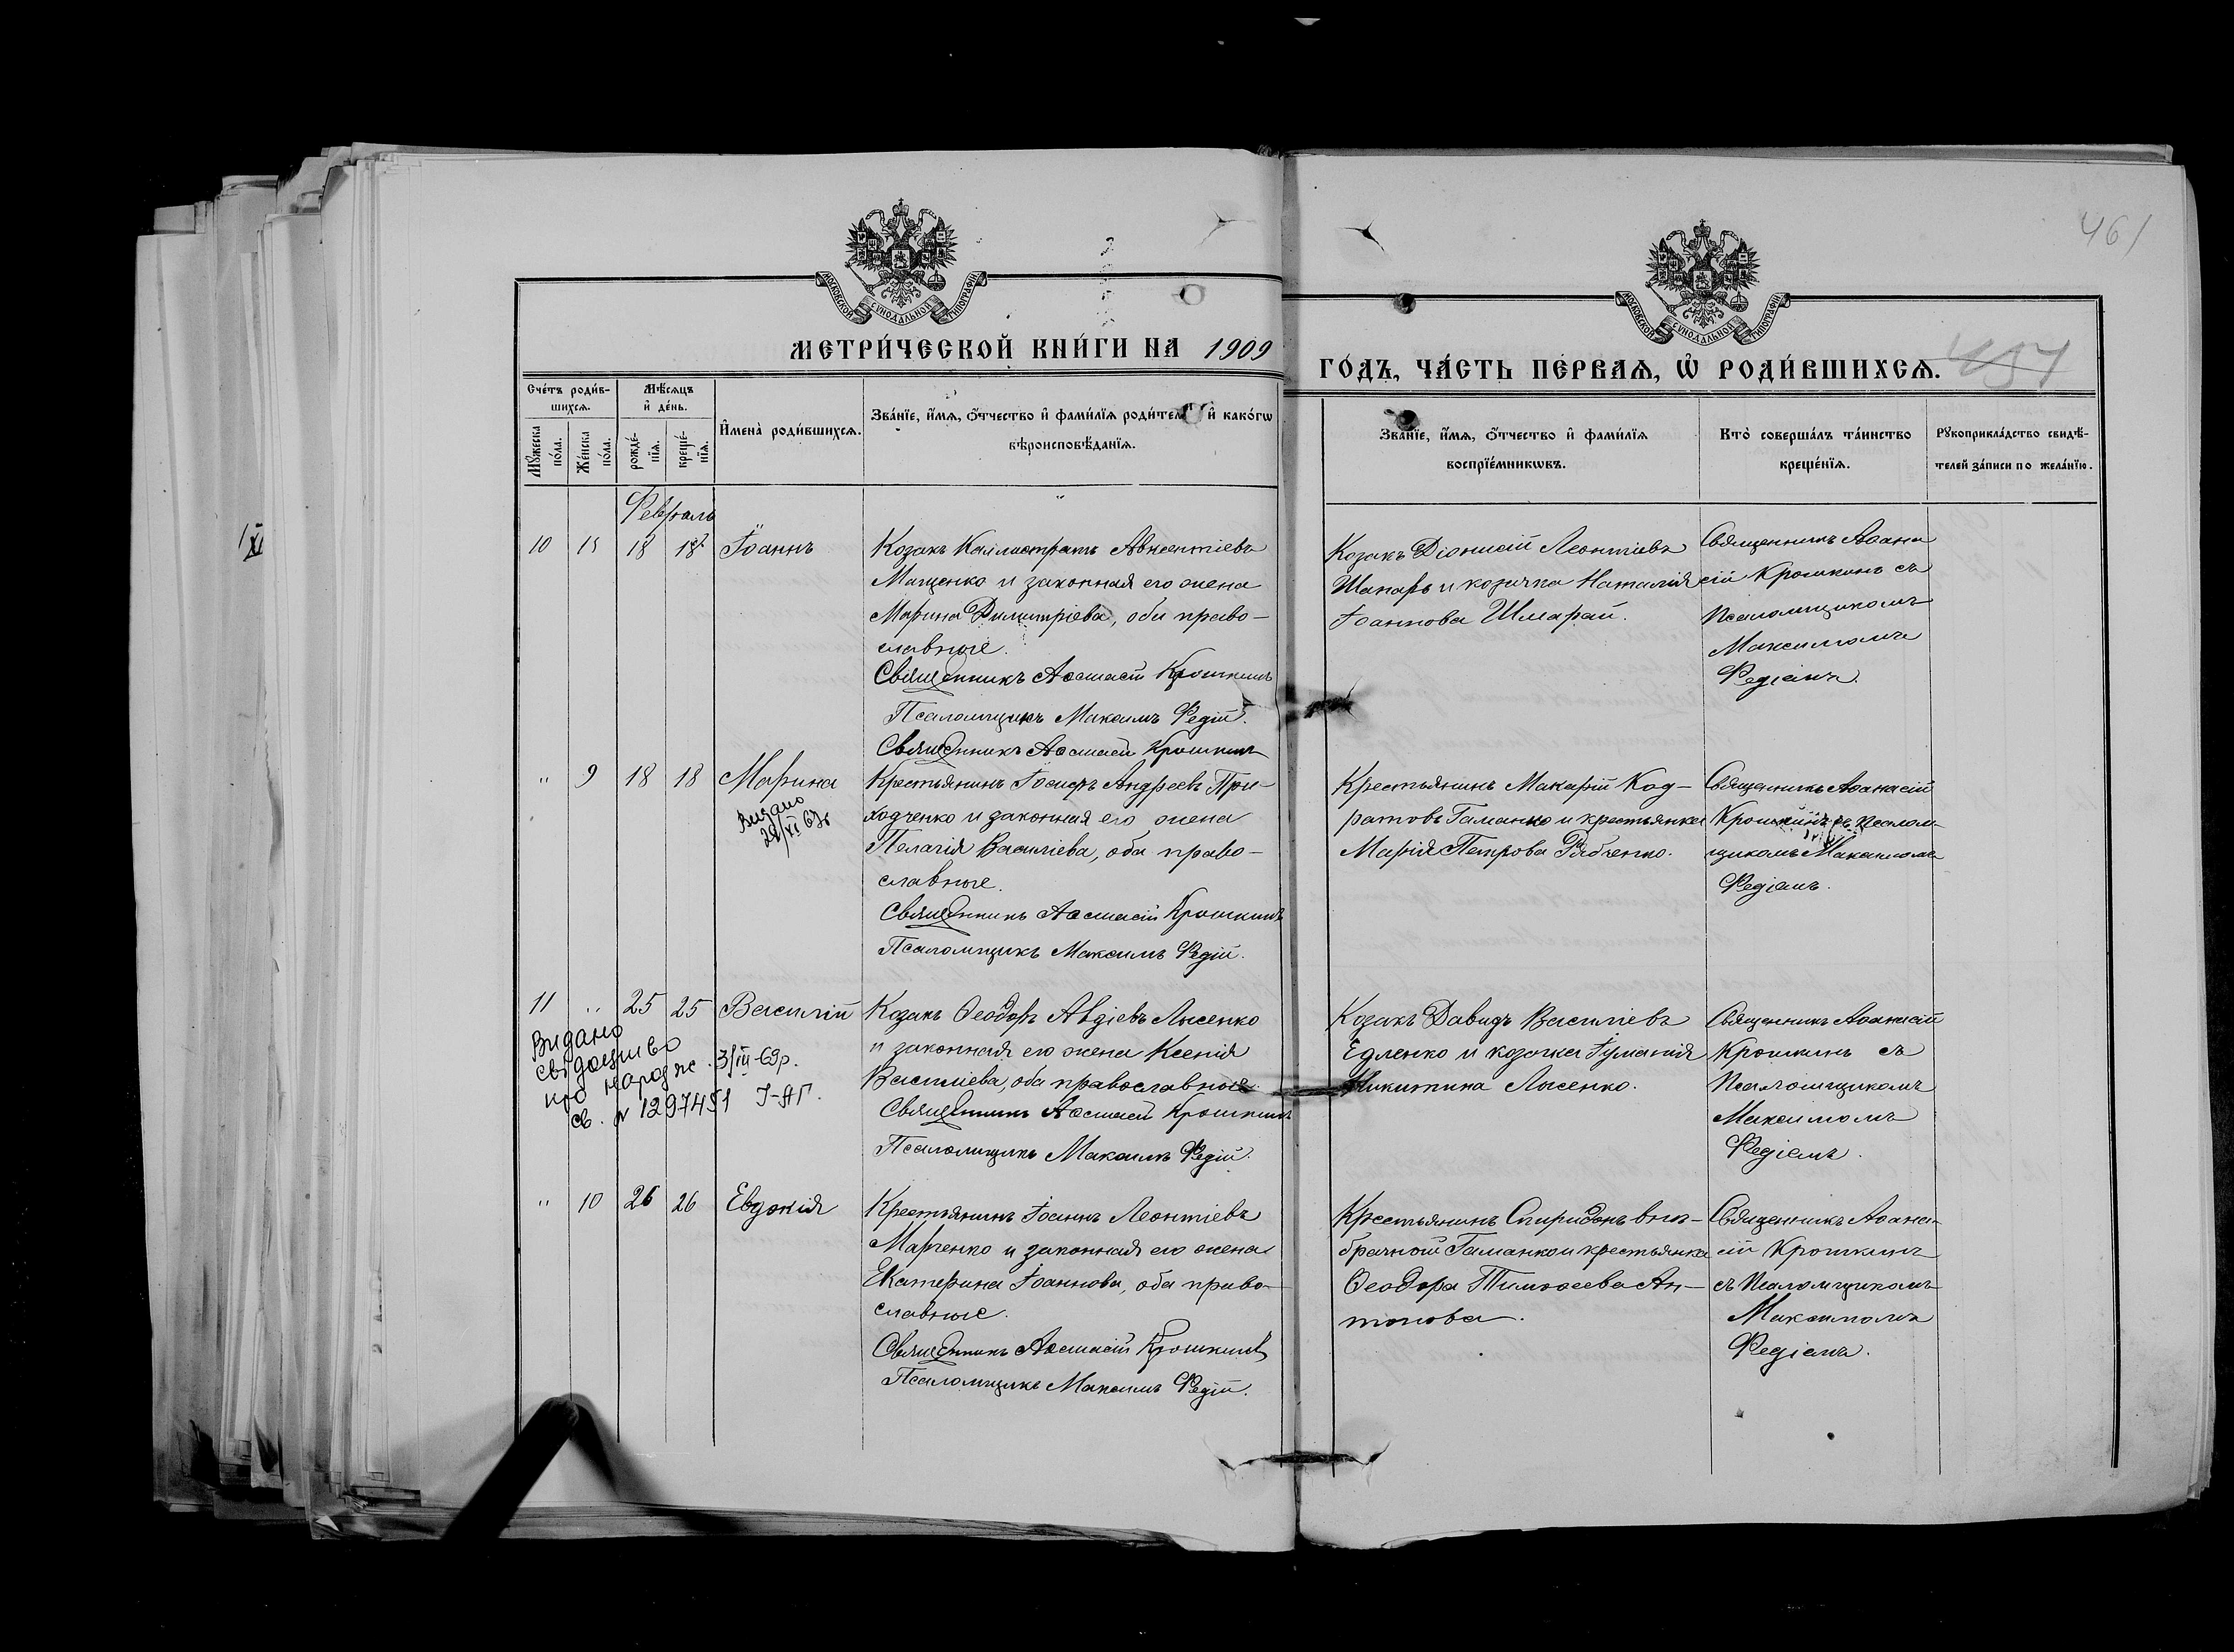 461
МОСКОВСКОЙ СѴНОДАЛЬНОЙ ТИПОГРАФІИ
МОСКОВСКОЙ СѴНОДАЛЬНОЙ ТИПОГРАФІИ
МЕТРИ́ЧЕСКОЙ КНИ́ГИ НА 1909
ГО́ДЪ, ЧА́СТЬ ПЕ́РВАѦ, Ѿ РОДИ́ВШИХСѦ.
Сче́тъ роди́в-
шихсѧ.
Мꙋ́жеска
по́ла.
Же́нска
по́ла.
Мѣ́сѧцъ
и҆ де́нь.
рожде́-
нїѧ.
креще́-
нїѧ.
И҆мена̀ роди́вшихсѧ.
Зва́нїе, и҆́мѧ, ѻ҆́тчество и҆ фами́лїѧ роди́тел и҆ како́гѡ
вѣроисповѣ́данїѧ.
Зва́нїе, и҆́мѧ, ѻ҆́тчество и҆ фами́лїѧ
воспрїе́мникѡвъ.
Кто̀ соверша́лъ та́инство
креще́нїѧ.
Рꙋкоприкла́дство свидѣ́-
телей за́писи по жела́нїю.
Февраль
10 18 18 Іоаннъ
Козакъ Каллистратъ Авксентіевъ
Мащенко и законная его жена
Марина Димитріева, оба право-
славные.
Священникъ Аѳанасій Крошкинъ
Псаломщикъ Максимъ Федій.
Священникъ Аѳанасій Крошкинъ
Козакъ Діонисій Леонтіевъ
Шапарь и козачка Наталія
Іоаннова Шмарай.
Священникъ Аѳана
сій Крошкинъ съ
Псаломщикомъ
Максимомъ
Федіемъ.
" 9 18 18 Марина
Видано
Крестьянинъ Іосифъ Андреевъ При-
ходченко и законная его жена
Пелагія Василіева, оба право-
славные.
Священникъ Аѳанасій Крошкинъ
Псаломщикъ Максимъ Федій.
Крестьянинъ Макарій Код-
ратовъ Гаманко и крестьянка
Марія Петрова Рябченко.
Священникъ Аѳанасій
Крошкинъ съ Псалом-
щикомъ Максимомъ
Федіемъ.
11 " 25 25 Василій
Видано
свідоцтво
про народж. 3/III-69р.
св. № 1297451 І-АГ.
Козакъ Ѳеодоръ Авдіевъ Лысенко
и законная его жена Ксенія
Василіева, оба православные.
Священникъ Аѳанасій Крошкинъ
Псаломщикъ Максимъ Федій.
Козакъ Давидъ Василіевъ
Едленко и козачка Іуліанія
Никитина Лысенко.
Священникъ Аѳанасій
Крошкинъ съ
Псаломщикомъ
Максимомъ
Федіемъ.
" 10 26 26 Евдокія
Крестьянинъ Іоаннъ Леонтіевъ
Марченко и законная его жена
Екатерина Іоаннова, оба право-
славные.
Священникъ Аѳанасій Крошкинъ
Псаломщикъ Максимъ Федій.
Крестьянинъ Спиридонъ внѣ-
брачной Гаманко и крестьянка
Ѳеодора Тимоѳеева Ан-
тонова.
Священникъ Аѳана-
сій Крошкинъ
съ Псаломщикомъ
Максимомъ
Федіемъ.